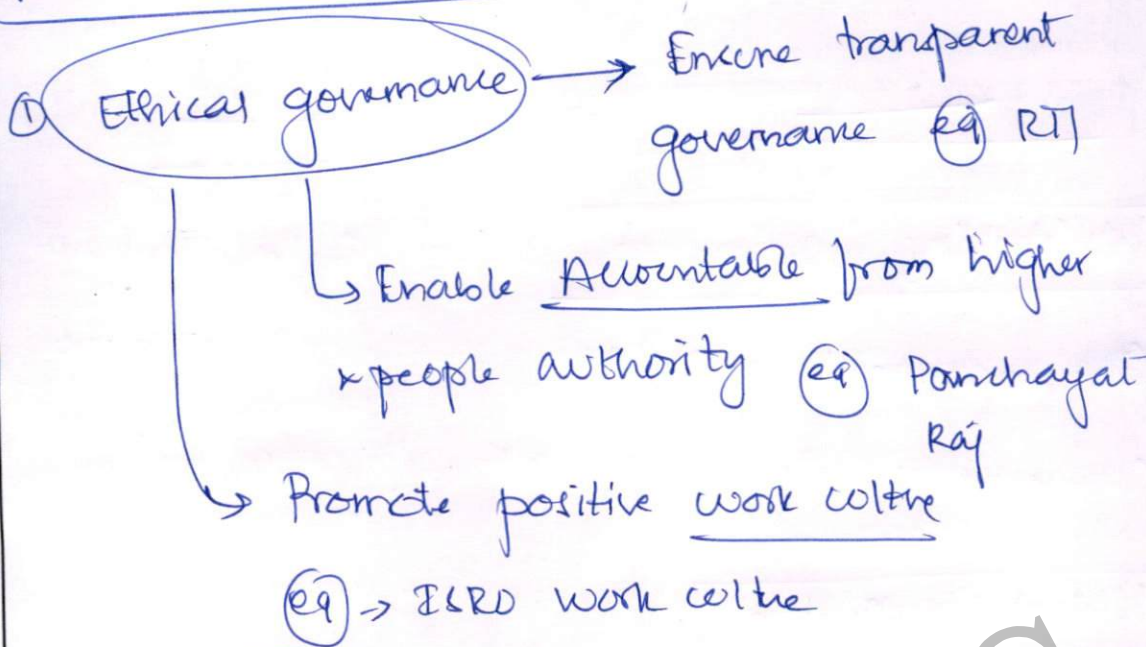 ① Ethical governance → Ensure transparent
governance eg RTI
↳ Enable Accountable from higher
x people authority eg Panchayat
Raj
↳ Promote positive work culture
eg → ISRO work culture